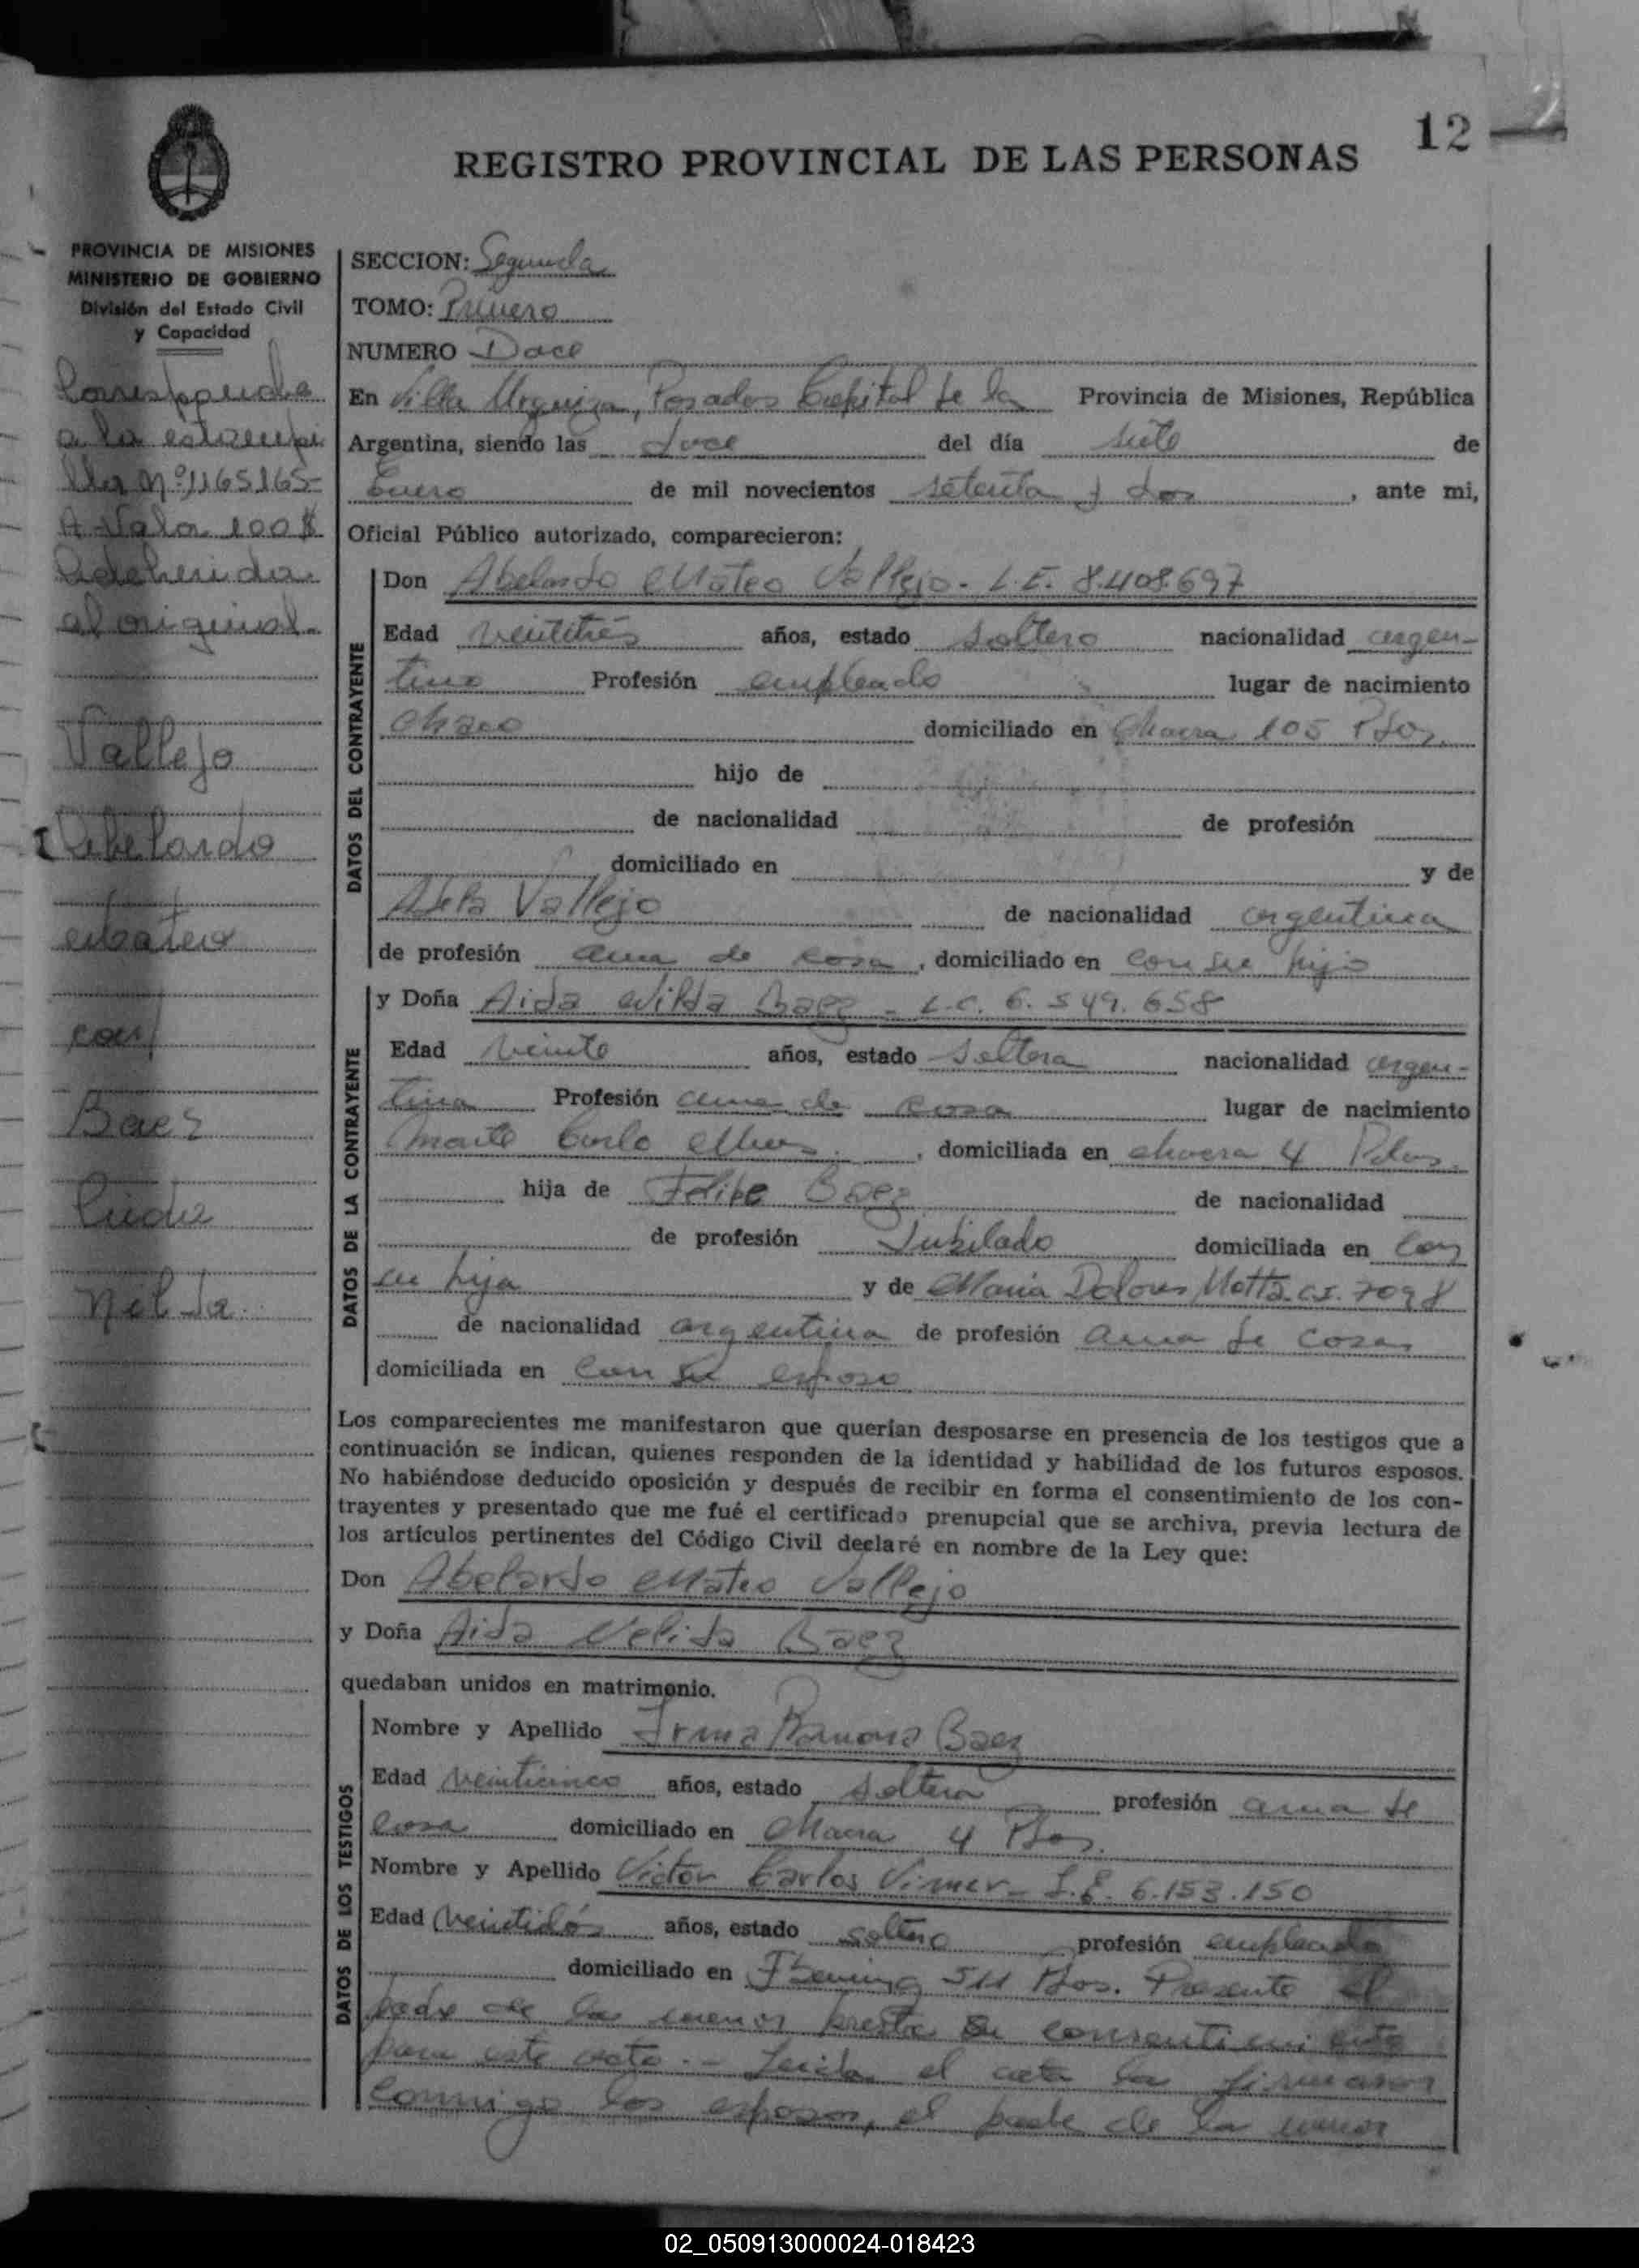 12
REGISTRO PROVINCIAL DE LAS PERSONAS
PROVINCIA DE MISIONES
MINISTERIO DE GOBIERNO
División del Estado Civil
y Capacidad
Corresponde
a la estampi
lla Nº 1165165-
A Valor 100 $
Adherida
al original.
Vallejo
Abelardo
Mateo
con
Baez
Aida
Nelda
SECCION: Segunda
TOMO: Primero
NUMERO Doce
En Villa Urquiza, Posadas Capital de la Provincia de Misiones, República
Argentina, siendo las doce del día siete de
Enero de mil novecientos setenta y dos, ante mi,
Oficial Público autorizado, comparecieron:
DATOS DEL CONTRAYENTE
Don Abelardo Mateo Vallejo - L.E. 8.408.697
Edad veintitrés años, estado soltero nacionalidad argen-
tino Profesión empleado lugar de nacimiento
Chaco domiciliado en Chacra 105 Pdas.
hijo de
de nacionalidad de profesión
domiciliado en y de
Adela Vallejo de nacionalidad argentina
de profesión ama de casa, domiciliado en con su hijo
DATOS DE LA CONTRAYENTE
y Doña Aida Baez - L.C. 6.549.658
Edad veinte años, estado soltera nacionalidad argen-
tina Profesión ama de casa lugar de nacimiento
Monte Carlo Mnes., domiciliada en chacra 4 Pdas.
hija de Felipe Baez de nacionalidad
de profesión Jubilado domiciliada en con
su hija y de Maria Dolores Motta C.I. 7098
de nacionalidad argentina de profesión ama de casa
domiciliada en con su esposo
Los comparecientes me manifestaron que querían desposarse en presencia de los testigos que a
continuación se indican, quienes responden de la identidad y habilidad de los futuros esposos.
No habiéndose deducido oposición y después de recibir en forma el consentimiento de los con-
trayentes y presentado que me fué el certificado prenupcial que se archiva, previa lectura de
los artículos pertinentes del Código Civil declaré en nombre de la Ley que:
Don Abelardo Mateo Vallejo
y Doña Aida Nelida Baez
quedaban unidos en matrimonio.
DATOS DE LOS TESTIGOS
Nombre y Apellido Irma Ramona Baez
Edad veinticinco años, estado soltera profesión ama de
casa domiciliado en Chacra 4 Pdas.
Nombre y Apellido Victor Carlos Vimer - L.E. 6.153.150
Edad veintidós años, estado soltero profesión empleado
domiciliado en Pdas. Presente el
padre de la menor presta su consentimiento
para este acto. - Leida el acta la firmaron
conmigo los esposos, el padre de la menor
02_050913000024-018423